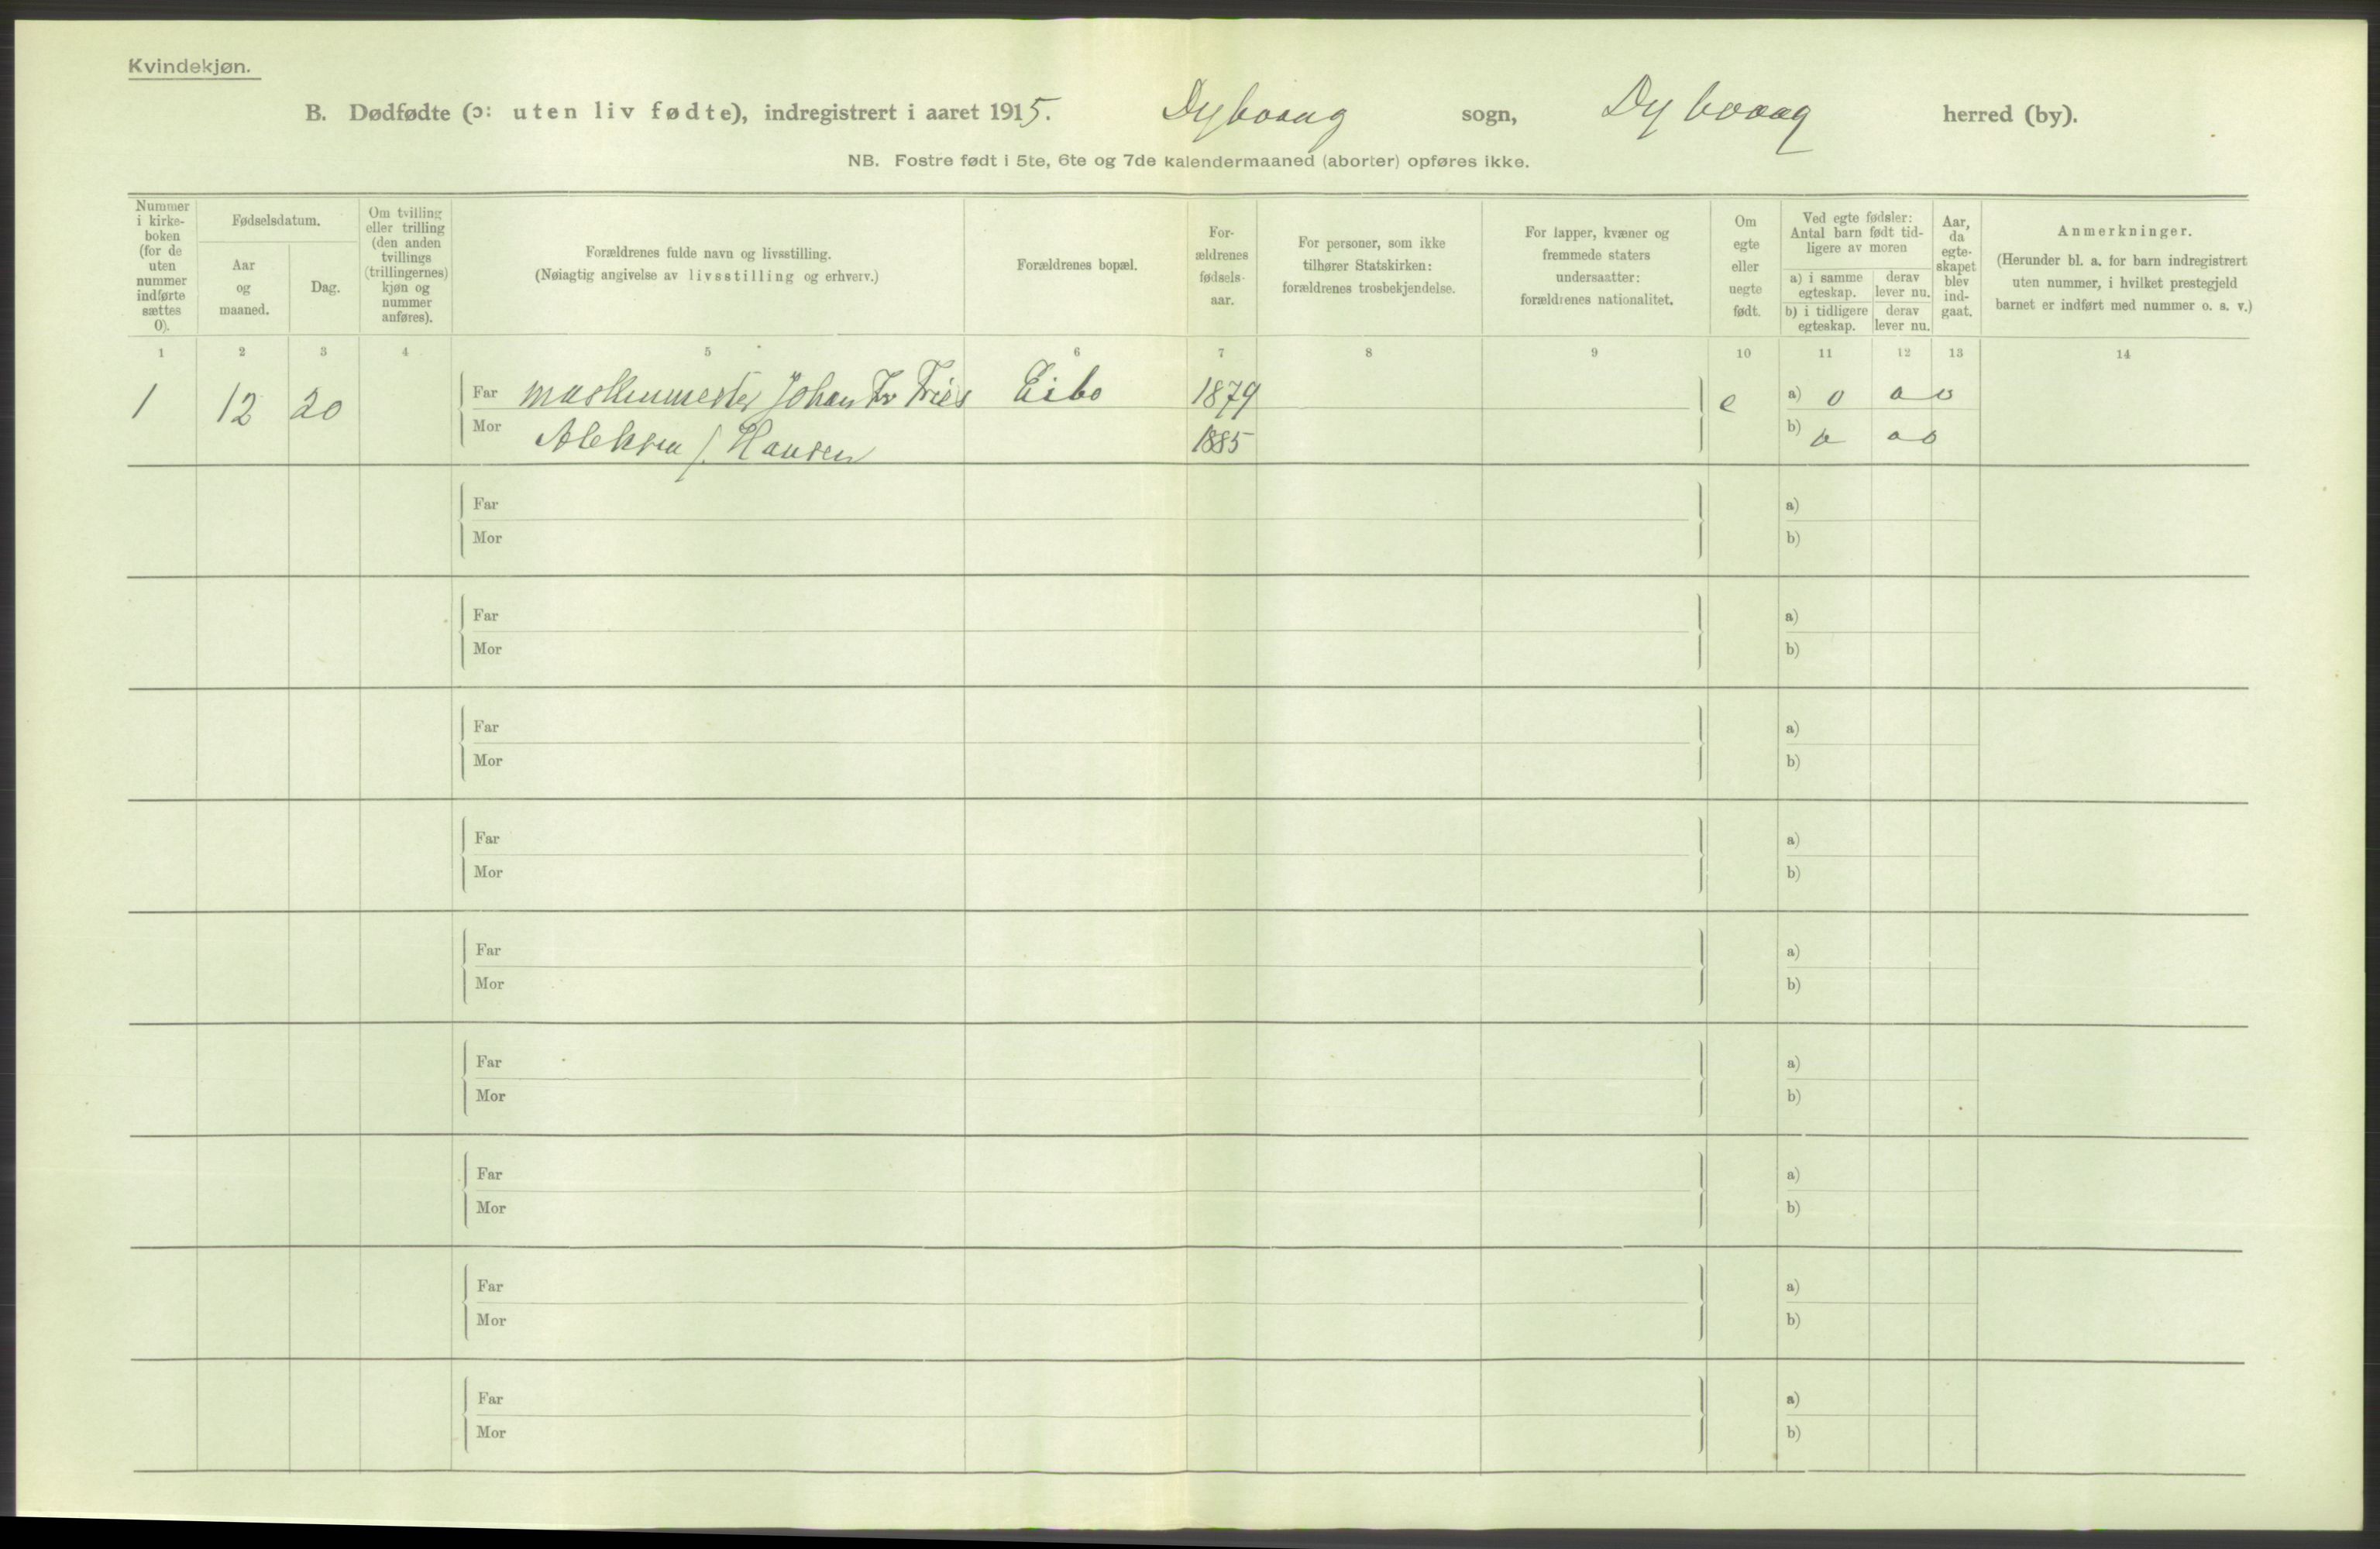 Kvindekjøn.
B. Dødfødte (ɔ: uten liv fødte), indregistrert i aaret 1915. Dybvaag sogn, Dybvaag herred (by).
NB. Fostre født i 5te, 6te og 7de kalendermaaned (aborter) opføres ikke.
Nummer
i kirke-
boken
(for de
uten
nummer
indførte
sættes
0).
Fødselsdatum.
Aar
og
maaned.
Dag.
Om tvilling
eller trilling
(den anden
tvillings
(trillingernes)
kjøn og
nummer
anføres).
Forældrenes fulde navn og livsstilling.
(Nøiagtig angivelse av livsstilling og erhverv.)
Forældrenes bopæl.
For-
ældrenes
fødsels-
aar.
For personer, som ikke
tilhører Statskirken:
forældrenes trosbekjendelse.
For lapper, kvæner og
fremmede staters
undersaatter:
forældrenes nationalitet.
Om
egte
eller
uegte
født.
Ved egte fødsler:
Antal barn født tid-
ligere av moren
a) i samme
egteskap.
derav
lever nu.
b) i tidligere
egteskap.
derav
lever nu.
Aar,
da
egte-
skapet
blev
ind-
gaat.
Anmerkninger.
(Herunder bl. a. for barn indregistrert
uten nummer, i hvilket prestegjeld
barnet er indført med nummer o. s. v.)
1 2 3 4 5 6 7 8 9 10 11 12 13 14
1 12 20 Far maskinmester Johan Fr Fries Eibo 1879 e a) 0 0 0
Mor Aleksa f. Hansen 1885 b) 0 0 0
Far a)
Mor b)
Far a)
Mor b)
Far a)
Mor b)
Far a)
Mor b)
Far a)
Mor b)
Far a)
Mor b)
Far a)
Mor b)
Far a)
Mor b)
Far a)
Mor b)